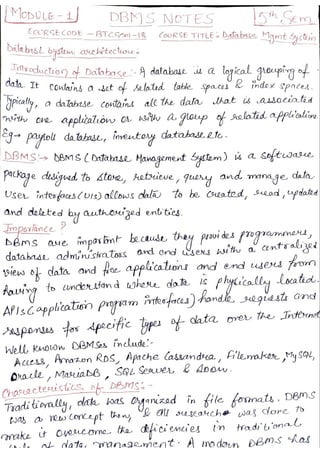 MODULE - 1
DBMS NOTES
5th Sem
COURSE CODE - BTCS501-18 COURSE TITLE :- Database Mgmt System
Database System architecture:-
Introduction of Database:- A database is a logical grouping of
data. It contains a set of related table spaces & index spaces.
Typically, a database contains all the data that is associated
with one application or with a group of related application.
Eg → payroll database, inventory database etc.
DBMS:→ DBMS (Database Management System) is a software
package designed to store, retrieve, query and manage data.
User interfaces (UIs) allows data to be created, read, updated
and deleted by authorized entities.
Importance ?
DBMS are important because they provides programmers,
database administrators and end users with a centralized
view of data and free applications and end users from
having to understand where data is physically located.
APIs (application program interfaces) handle requests and
responses for specific types of data over the Internet
Well known DBMSes include:-
Access, Amazon RDS, Apache Cassandra, Filemaker, MySQL,
Oracle, MariaDB, SQL Server &
Characteristics of DBMS:-
Traditionally, data was organized in file formats. DBMS
was a new concept then, & all research was done to
make it overcome the deficiencies in traditional
of data management. A modern DBMS has